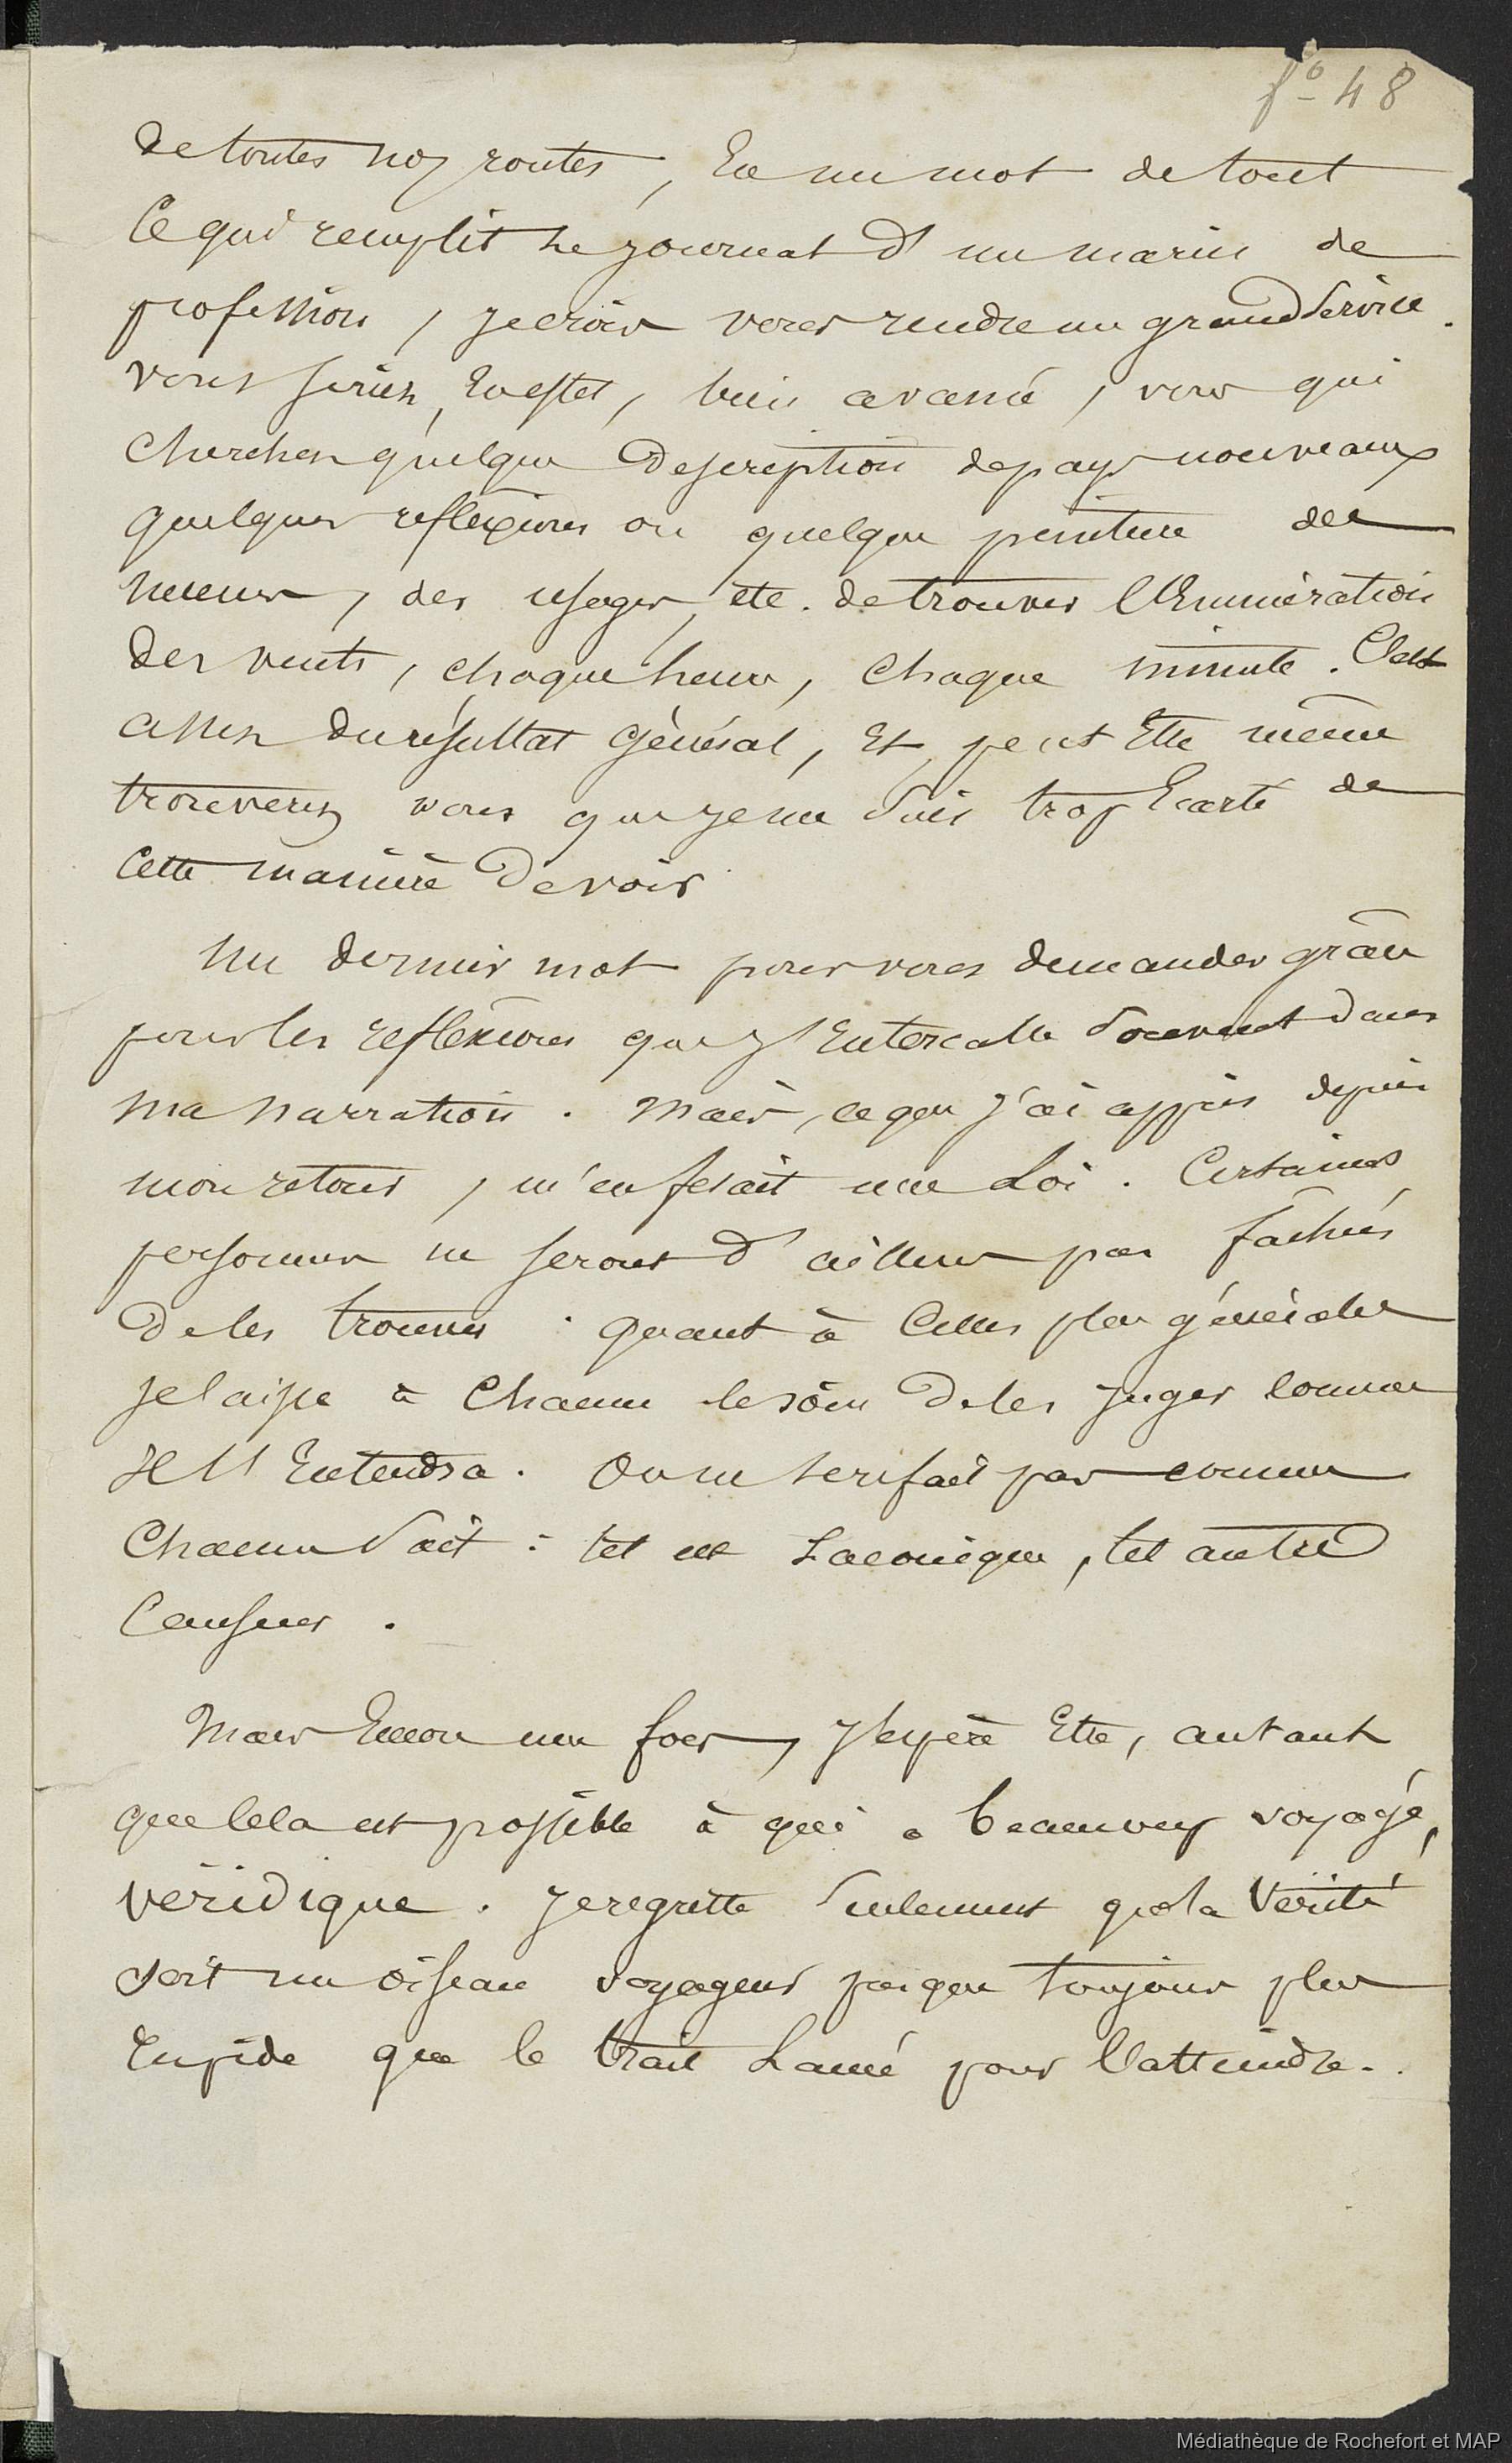 fo 48
de toutes nos routes, En un mot de tout
Ce qui remplit le journal d'un marin de
profession, je crois vous rendre un grand Service.
vous seriez, En effet, bien avancé, vous qui
Cherchez quelque Description de pays nouveaux
quelques reflexions ou quelque peinture des
mœurs, des usages, etc. de trouver l'Enumération
Des vents, chaque heure, Chaque minute. C'est
assez du résultat Général, Et peut Etre même
trouverez vous que je me suis trop Ecarté de
Cette manière De voir
Un dernier mot pour vous demander grâce
pour les reflexions que j'Entercalle souvent dans
ma narration. Mais, ce que j'ai appris depuis
mon retour, m'en fesait une Loi. Certaines
personnes ne seront d'ailleurs pas fâchées
De les trouver. quant à Celles plus générales
je laisse à Chacun le soin De les juger comme
Il l'Entendra. On ne se refait pas comme
Chacun Sait: tel est Laconique, tel autre
Causeur.
Mais Encore une fois, J'espère Etre, autant
que Cela est possible à qui a beaucoup voyagé,
véridique. Je regrette Seulement que la Vérité
soit un oiseau voyageur presque toujours plus
rapide que le trait Lancé pour l'atteindre.
Médiathèque de Rochefort et MAP